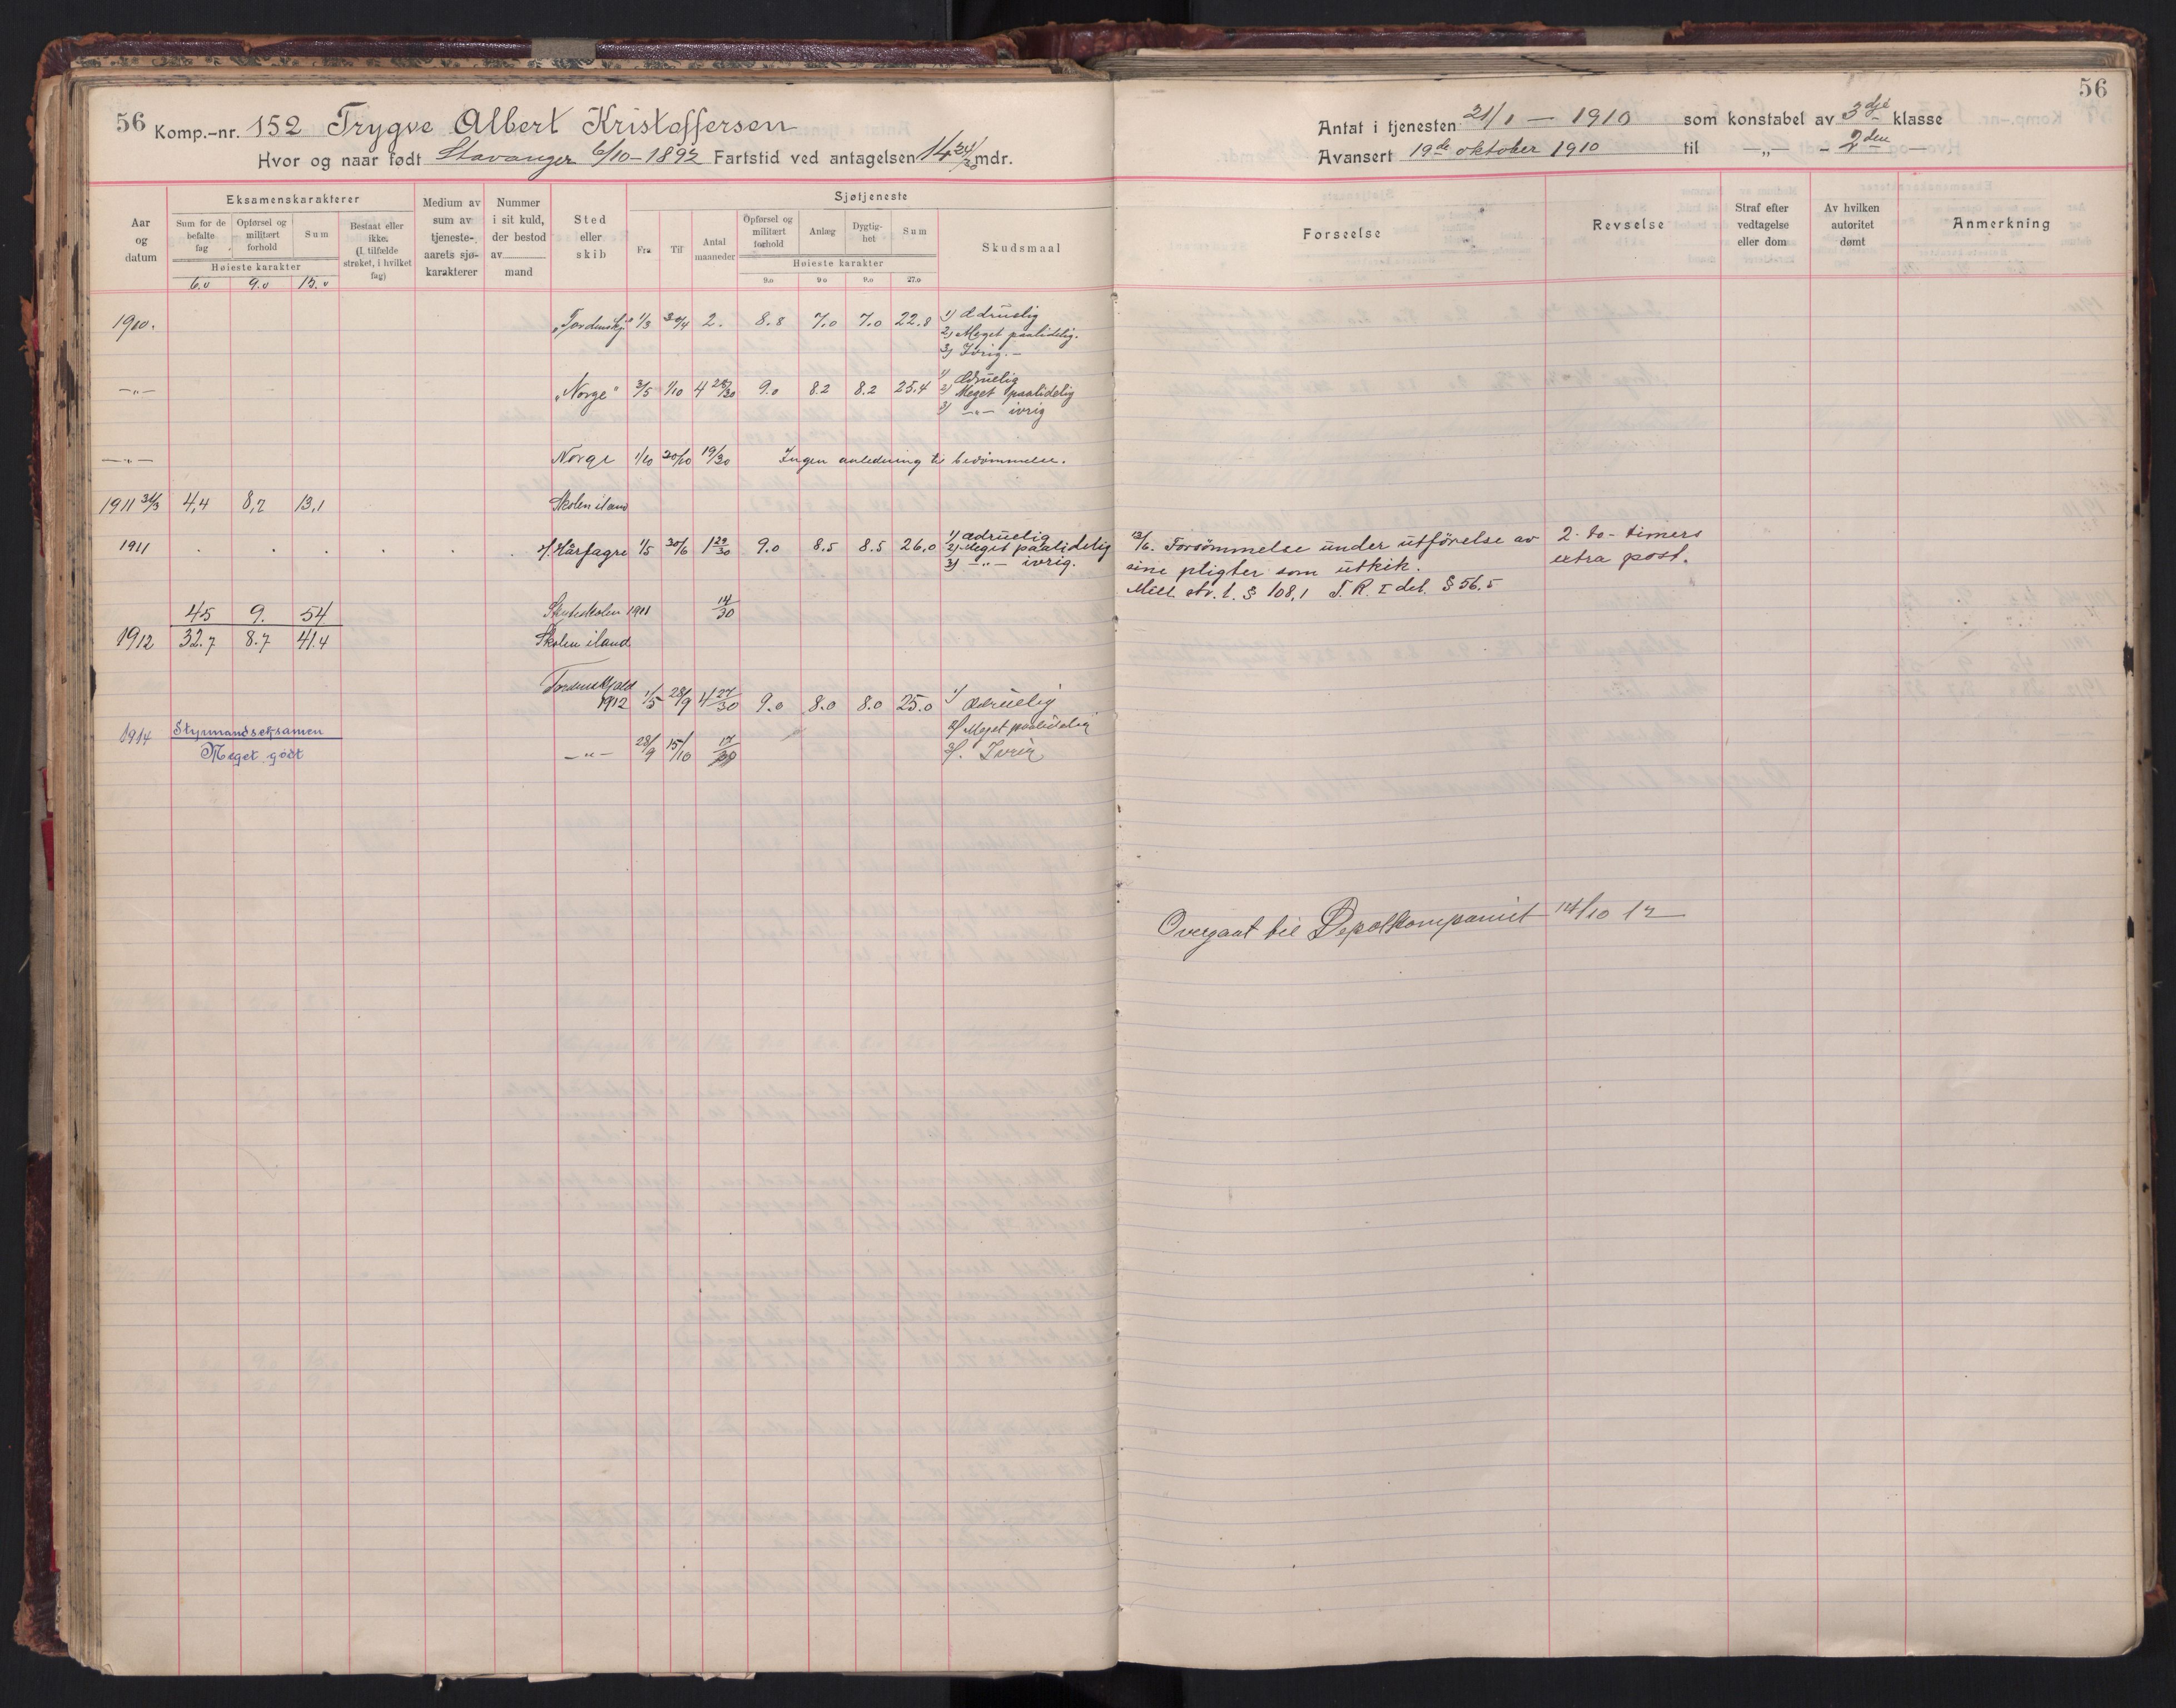 56 Komp.-nr. 152 Trygve Albert Kristoffersen
Hvor og naar født Stavanger 6/10-1892 Fartstid ved antagelsen 14 24/30 mdr.
Aar og datum
Eksamenskarakterer
Sum for de befalte fag
Opførsel og militært forhold
Sum
Høieste karakter
6.0 9.0 15.0
Bestaat eller ikke. (I tilfælde strøket, i hvilket fag)
Medium av sum av tjeneste-aarets sjø-karakterer
Nummer i sit kuld, der bestod av mand
Sted eller skib
Sjøtjeneste
Fra Til Antal maaneder
Opførsel og militært forhold
Anlæg Dygtig-het Sum
Høieste karakter
9.0 9.0 9.0 27.0
Skudsmaal
1910. "Tordenskj." 1/3 30/4 2. 8.8 7.0 7.0 22.8 1) Ædruelig
2) Meget paalidelig.
3) Ivrig. –
—"— "Norge" 3/5 1/10 4 28/30 9.0 8.2 8.2 25.4 1) Ædruelig
2) Meget paalidelig
3) —"— ivrig
—"— Norge 1/10 20/10 19/30 Ingen anledning til bedømmelse.
1911 31/3 4,4 8,7 13,1 Skolen iland
1911 H. Hårfagre 1/5 30/6 1 29/30 9.0 8.5 8.5 26,0 1) Ædruelig
2) Meget paalidelig
3) —"— ivrig.
45 9. 54 Skytteskolen 1911 14/30
1912 32.7 8.7 41.4 Skolen iland
Tordenskjold
1912 1/5 28/9 4 27/30 9.0 8.0 8.0 25.0 1) Ædruelig
2) Meget paalidelig
3). Ivrig
1914 Styrmandseksamen
Meget godt
—"— 28/9 15/10 17/30
56
Antat i tjenesten 21/1 — 1910 som konstabel av 3dje klasse
Avansert 19de oktober 1910 til —„— - 2den —
Forseelse Revselse Straf efter vedtagelse eller dom Av hvilken autoritet dømt Anmerkning
13/6. Forsømmelse under utførelse av 2-to-timers
sine pligter som utkik. extra post.
Mill. str. l. § 108,1 T. R. I del. § 56,5
Overgaat til Depotkompaniet 14/10 12